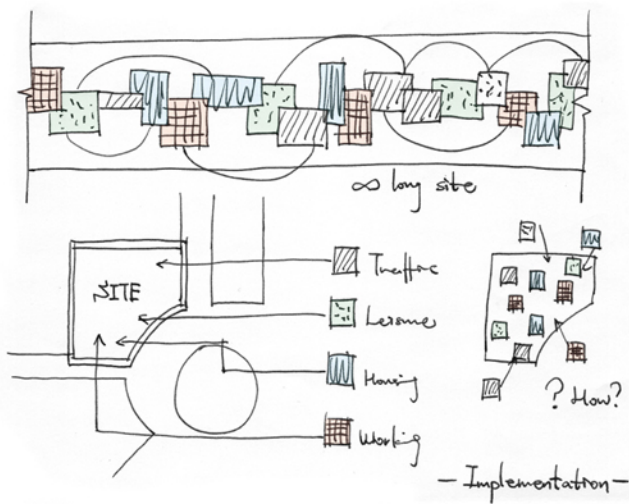 ∞ long site
SITE
Traffic
Leisure
Housing
Working
? How?
- Implementation -